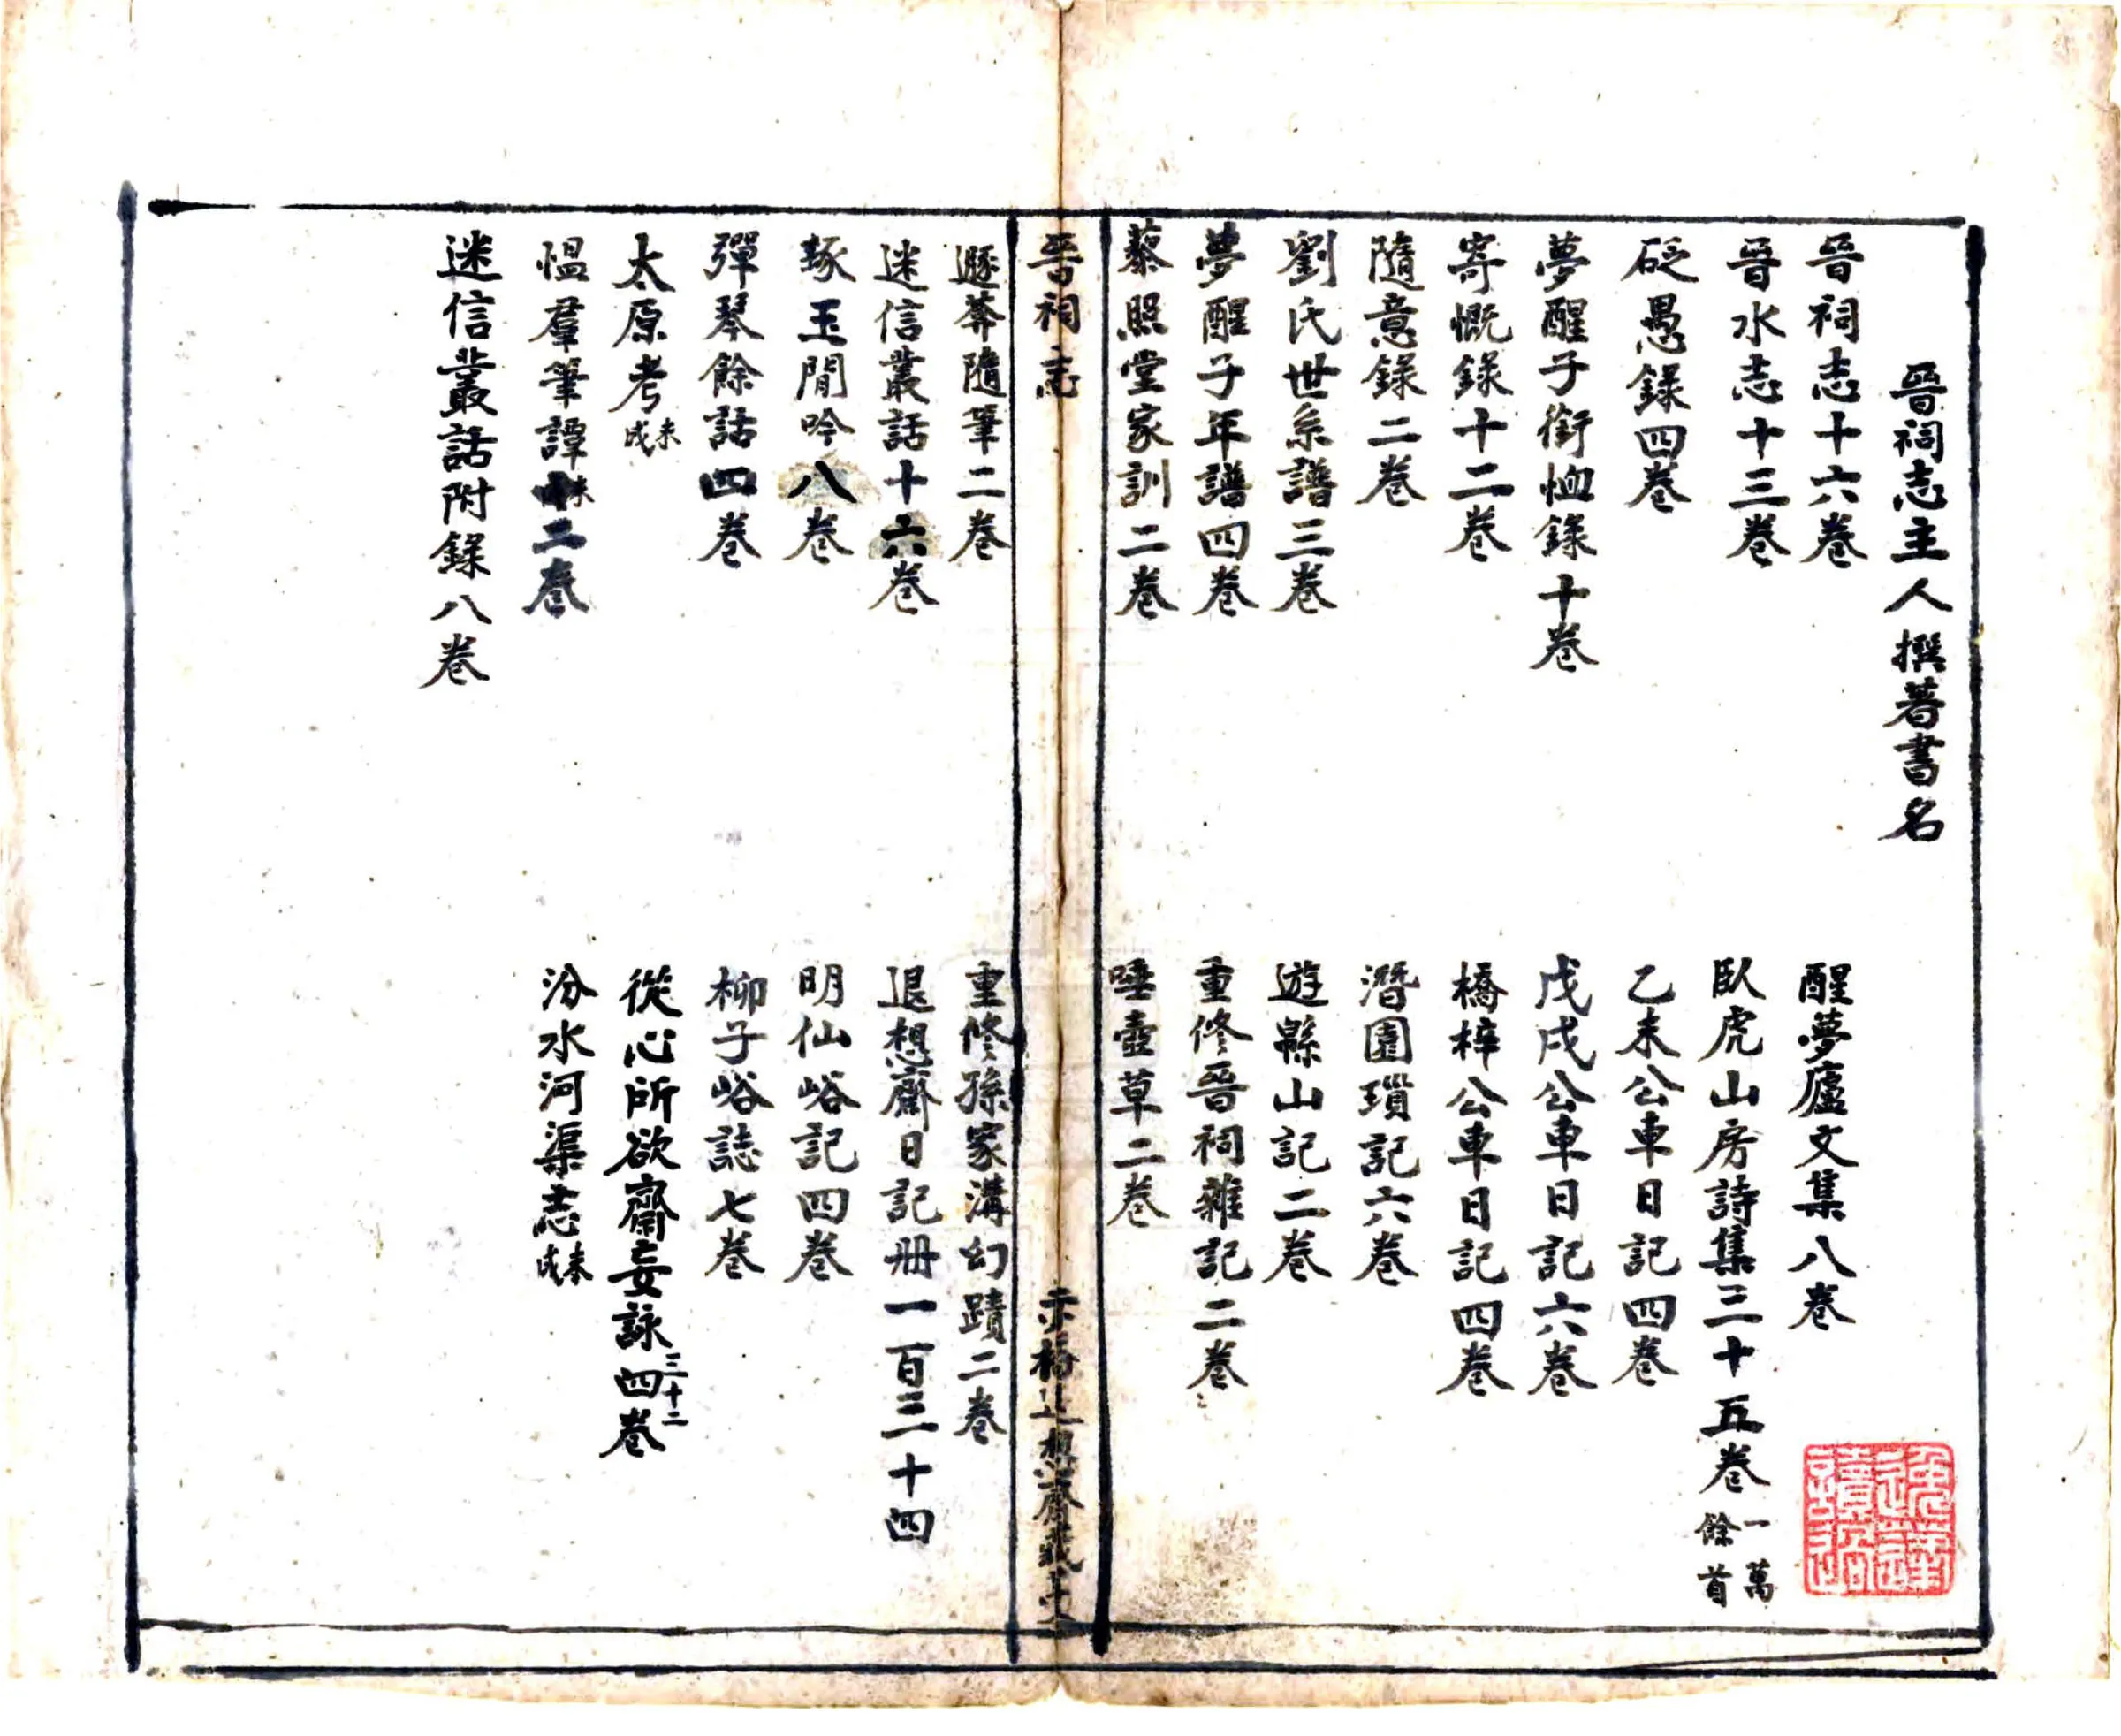 晉祠志主人撰著書名
晉祠志十六卷
醒夢廬文集八卷
晉水志十三卷
臥虎山房詩集三十五卷 一萬餘首
砭愚錄四卷
乙未公車日記四卷
夢醒子銜恤錄十卷
戊戌公車日記六卷
寄慨錄十二卷
橋梓公車日記四卷
隨意錄二卷
潛園瑣記六卷
劉氏世系譜三卷
遊緜山記二卷
夢醒子年譜四卷
重修晉祠雜記二卷
藜照堂家訓二卷
唾壺草二卷
晉祠志
赤橋退想齋藏
遯莽隨筆二卷
重修孫家溝幻蹟二卷
迷信叢話十六卷
退想齋日記册一百三十四
琢玉閒吟八卷
明仙峪記四卷
彈琴餘話四卷
柳子峪誌七卷
太原考 未成
從心所欲齋妄詠四卷 三十二
愠羣筆譚二卷
汾水河渠志 未成
迷信叢話附錄八卷